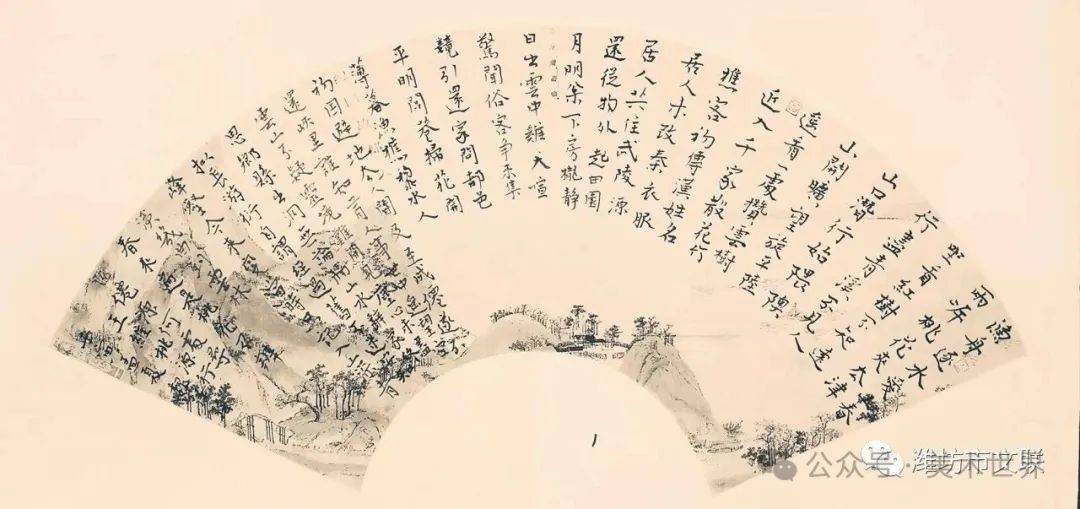 漁舟逐水愛山春
兩岸桃花夾古津
坐看紅樹不知遠
行盡青溪不見人
山口潛行始隈隩
山開曠望旋平陸
遙看一處攢雲樹
近入千家散花竹
樵客初傳漢姓名
居人未改秦衣服
居人共住武陵源
還從物外起田園
月明松下房櫳靜
日出雲中雞犬喧
驚聞俗客爭來集
競引還家問都邑
平明閭巷掃花開
薄暮漁樵乘水入
初因避地去人間及至成僊遂不
還峽里誰知有人事世中遙望空
雲山不疑靈境難聞見塵心未盡
思鄉縣出洞無論隔山水辭家終
擬長游衍自謂經過舊不迷安知
峰壑今來變當時只記入山深青
春來遍是桃花水不辨
公众号·美术世界
潍坊市文联